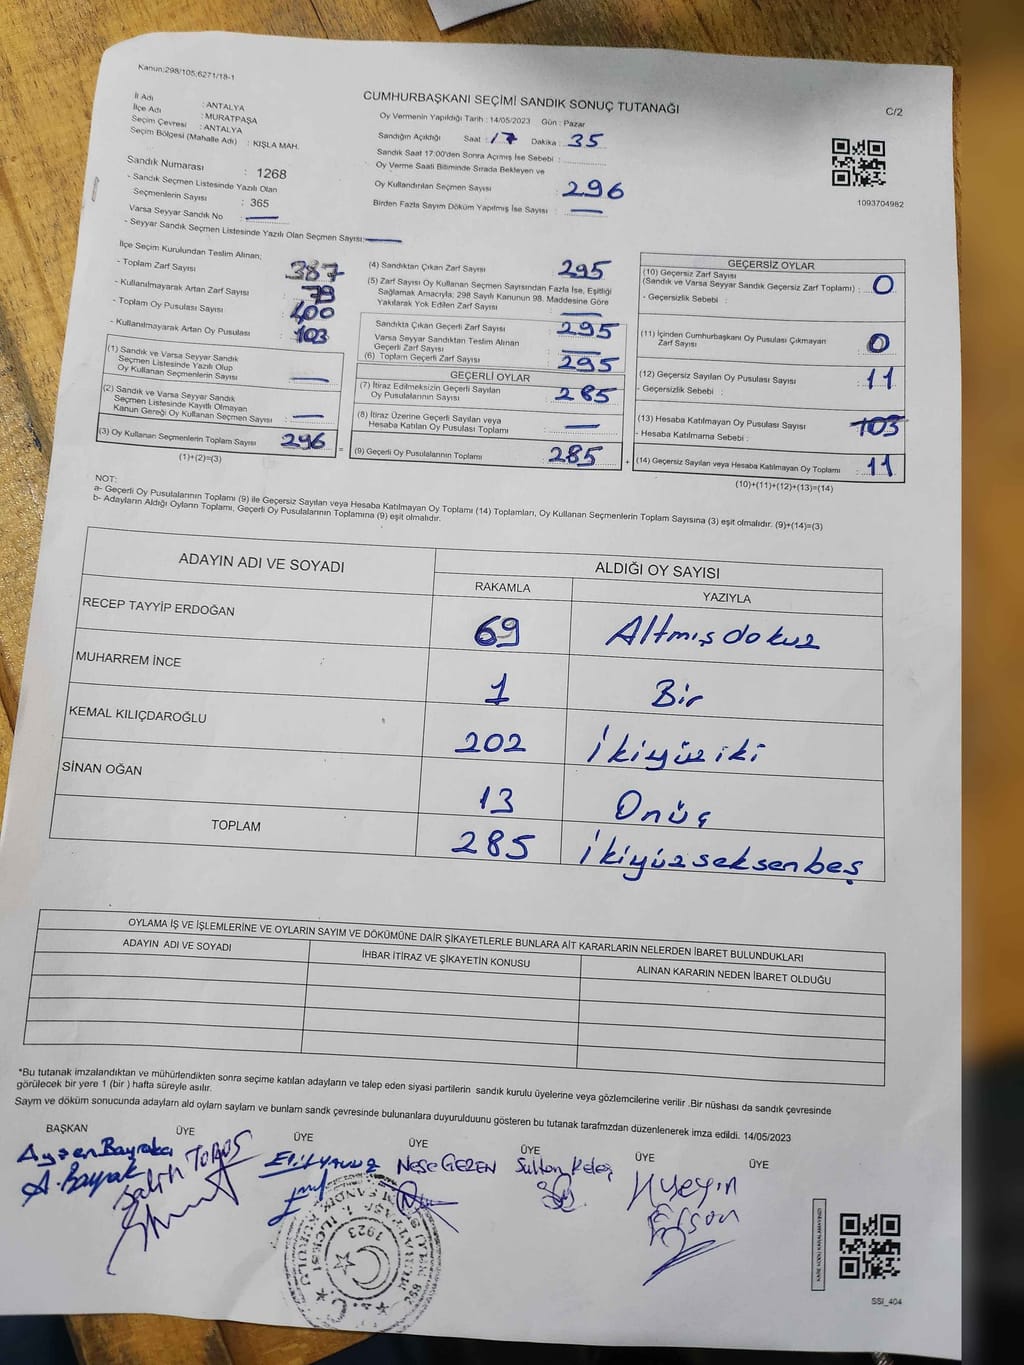 Kanun;298/105;6271/18-1
CUMHURBAŞKANI SEÇİMİ SANDIK SONUÇ TUTANAĞI
C/2
İl Adı : ANTALYA
İlçe Adı : MURATPAŞA
Seçim Çevresi : ANTALYA
Seçim Bölgesi (Mahalle Adı) : KIŞLA MAH.
Sandık Numarası : 1268
- Sandık Seçmen Listesinde Yazılı Olan
Seçmenlerin Sayısı : 365
Varsa Seyyar Sandık No : —
- Seyyar Sandık Seçmen Listesinde Yazılı Olan Seçmen Sayısı: —
Oy Vermenin Yapıldığı Tarih : 14/05/2023 Gün : Pazar
Sandığın Açıldığı Saat : 17 Dakika : 35
Sandık Saat 17:00'den Sonra Açımış İse Sebebi :
Oy Verme Saati Bitiminde Sırada Bekleyen ve
Oy Kullandırılan Seçmen Sayısı : 296
Birden Fazla Sayım Döküm Yapılmış İse Sayısı : —
1093704982
İlçe Seçim Kurulundan Teslim Alınan;
- Toplam Zarf Sayısı : 387
- Kullanılmayarak Artan Zarf Sayısı : 79
- Toplam Oy Pusulası Sayısı : 400
- Kullanılmayarak Artan Oy Pusulası : 103
(1) Sandık ve Varsa Seyyar Sandık
Seçmen Listesinde Yazılı Olup
Oy Kullanan Seçmenlerin Sayısı : —
(2) Sandık ve Varsa Seyyar Sandık
Seçmen Listesinde Kayıtlı Olmayan
Kanun Gereği Oy Kullanan Seçmen Sayısı : —
(3) Oy Kullanan Seçmenlerin Toplam Sayısı : 296
(1)+(2)=(3)
(4) Sandıktan Çıkan Zarf Sayısı : 295
(5) Zarf Sayısı Oy Kullanan Seçmen Sayısından Fazla İse, Eşitliği
Sağlamak Amacıyla; 298 Sayılı Kanunun 98. Maddesine Göre
Yakılarak Yok Edilen Zarf Sayısı : —
Sandıkta Çıkan Geçerli Zarf Sayısı : 295
Varsa Seyyar Sandıktan Teslim Alınan
Geçerli Zarf Sayısı : —
(6) Toplam Geçerli Zarf Sayısı : 295
GEÇERLİ OYLAR
(7) İtiraz Edilmeksizin Geçerli Sayılan
Oy Pusulalarının Sayısı : 285
(8) İtiraz Üzerine Geçerli Sayılan veya
Hesaba Katılan Oy Pusulası Toplamı : —
(9) Geçerli Oy Pusulalarının Toplamı : 285
GEÇERSİZ OYLAR
(10) Geçersiz Zarf Sayısı
(Sandık ve Varsa Seyyar Sandık Geçersiz Zarf Toplamı) : 0
- Geçersizlik Sebebi :
(11) İçinden Cumhurbaşkanı Oy Pusulası Çıkmayan
Zarf Sayısı : 0
(12) Geçersiz Sayılan Oy Pusulası Sayısı : 11
- Geçersizlik Sebebi :
(13) Hesaba Katılmayan Oy Pusulası Sayısı : 103
- Hesaba Katılmama Sebebi :
(14) Geçersiz Sayılan veya Hesaba Katılmayan Oy Toplamı : 11
(10)+(11)+(12)+(13)=(14)
NOT:
a- Geçerli Oy Pusulalarının Toplamı (9) ile Geçersiz Sayılan veya Hesaba Katılmayan Oy Toplamı (14) Toplamları, Oy Kullanan Seçmenlerin Toplam Sayısına (3) eşit olmalıdır. (9)+(14)=(3)
b- Adayların Aldığı Oyların Toplamı, Geçerli Oy Pusulalarının Toplamına (9) eşit olmalıdır.
ADAYIN ADI VE SOYADI
ALDIĞI OY SAYISI
RAKAMLA YAZIYLA
RECEP TAYYİP ERDOĞAN 69 Altmış dokuz
MUHARREM İNCE 1 Bir
KEMAL KILIÇDAROĞLU 202 İkiyüz iki
SİNAN OĞAN 13 Onüç
TOPLAM 285 İkiyüz seksen beş
OYLAMA İŞ VE İŞLEMLERİNE VE OYLARIN SAYIM VE DÖKÜMÜNE DAİR ŞİKAYETLERLE BUNLARA AİT KARARLARIN NELERDEN İBARET BULUNDUKLARI
ADAYIN ADI VE SOYADI İHBAR İTİRAZ VE ŞİKAYETİN KONUSU ALINAN KARARIN NEDEN İBARET OLDUĞU
*Bu tutanak imzalandıktan ve mühürlendikten sonra seçime katılan adayların ve talep eden siyasi partilerin sandık kurulu üyelerine veya gözlemcilerine verilir .Bir nüshası da sandık çevresinde
görülecek bir yere 1 (bir ) hafta süreyle asılır.
Sayım ve döküm sonucunda adayların ald oyların sayları ve bunların sandk çevresinde bulunanlara duyurulduunu gösteren bu tutanak tarafmzdan düzenlenerek imza edildi. 14/05/2023
BAŞKAN ÜYE ÜYE ÜYE ÜYE ÜYE ÜYE
Ayşen Bayrak Salih TOROS Elif YAVUZ Neşe GEZEN Sultan Keleş Hüseyin
A. Bayrak
1923
SSI_404